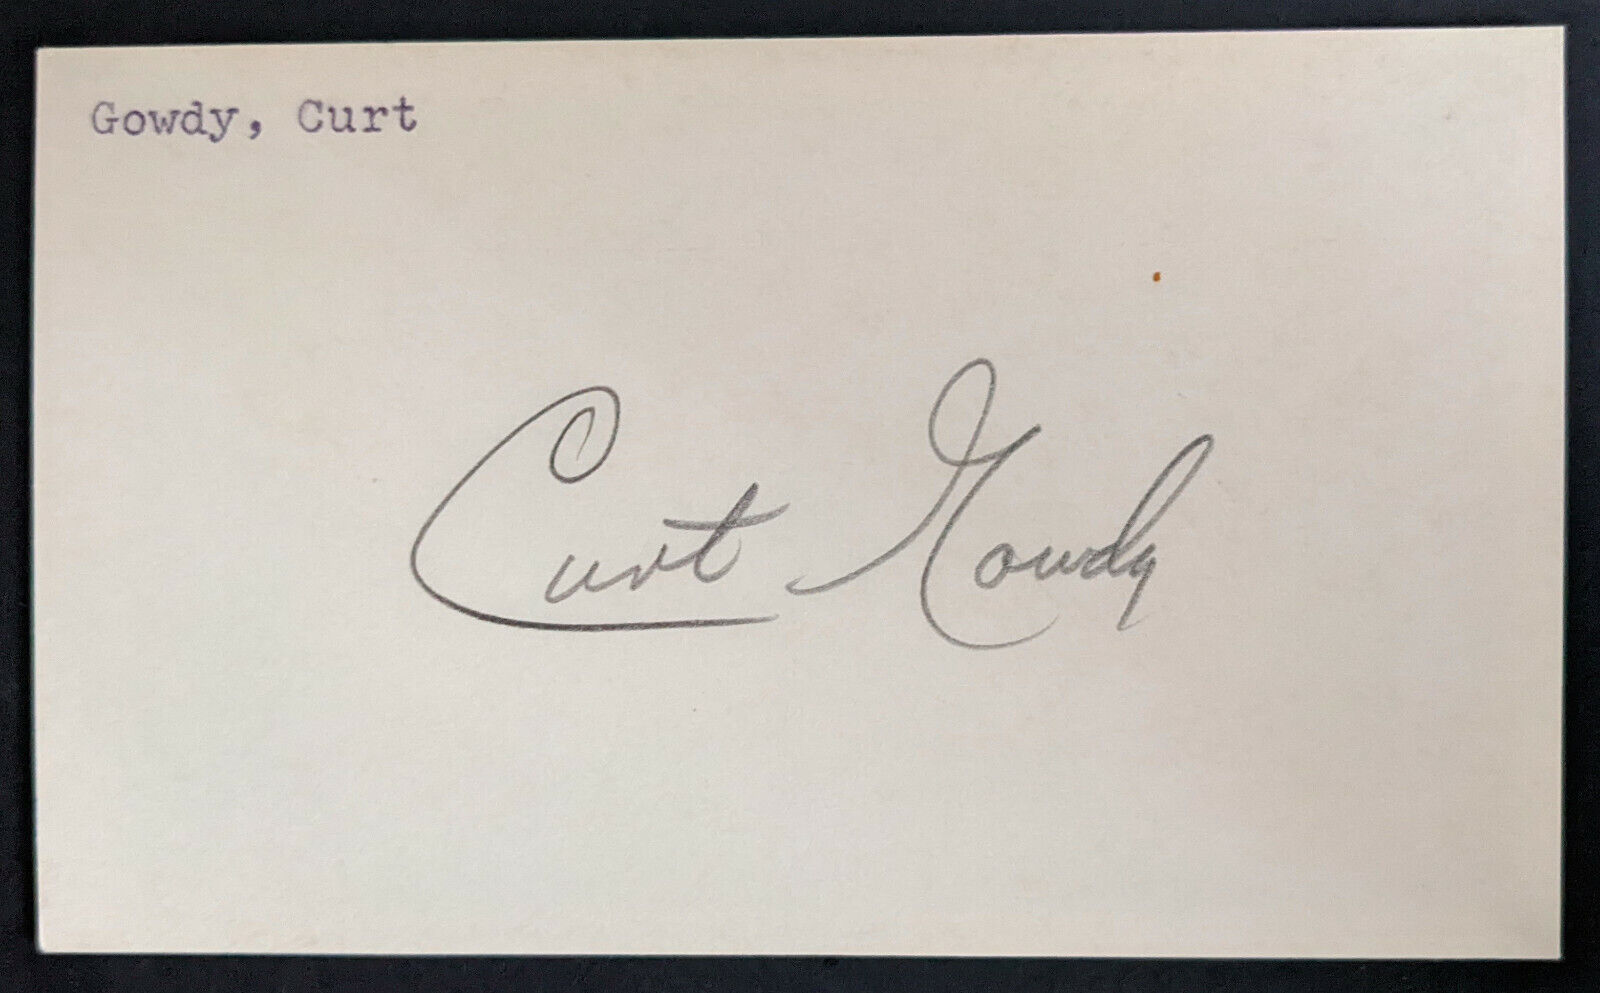 Gowdy, Curt
Curt Gowdy